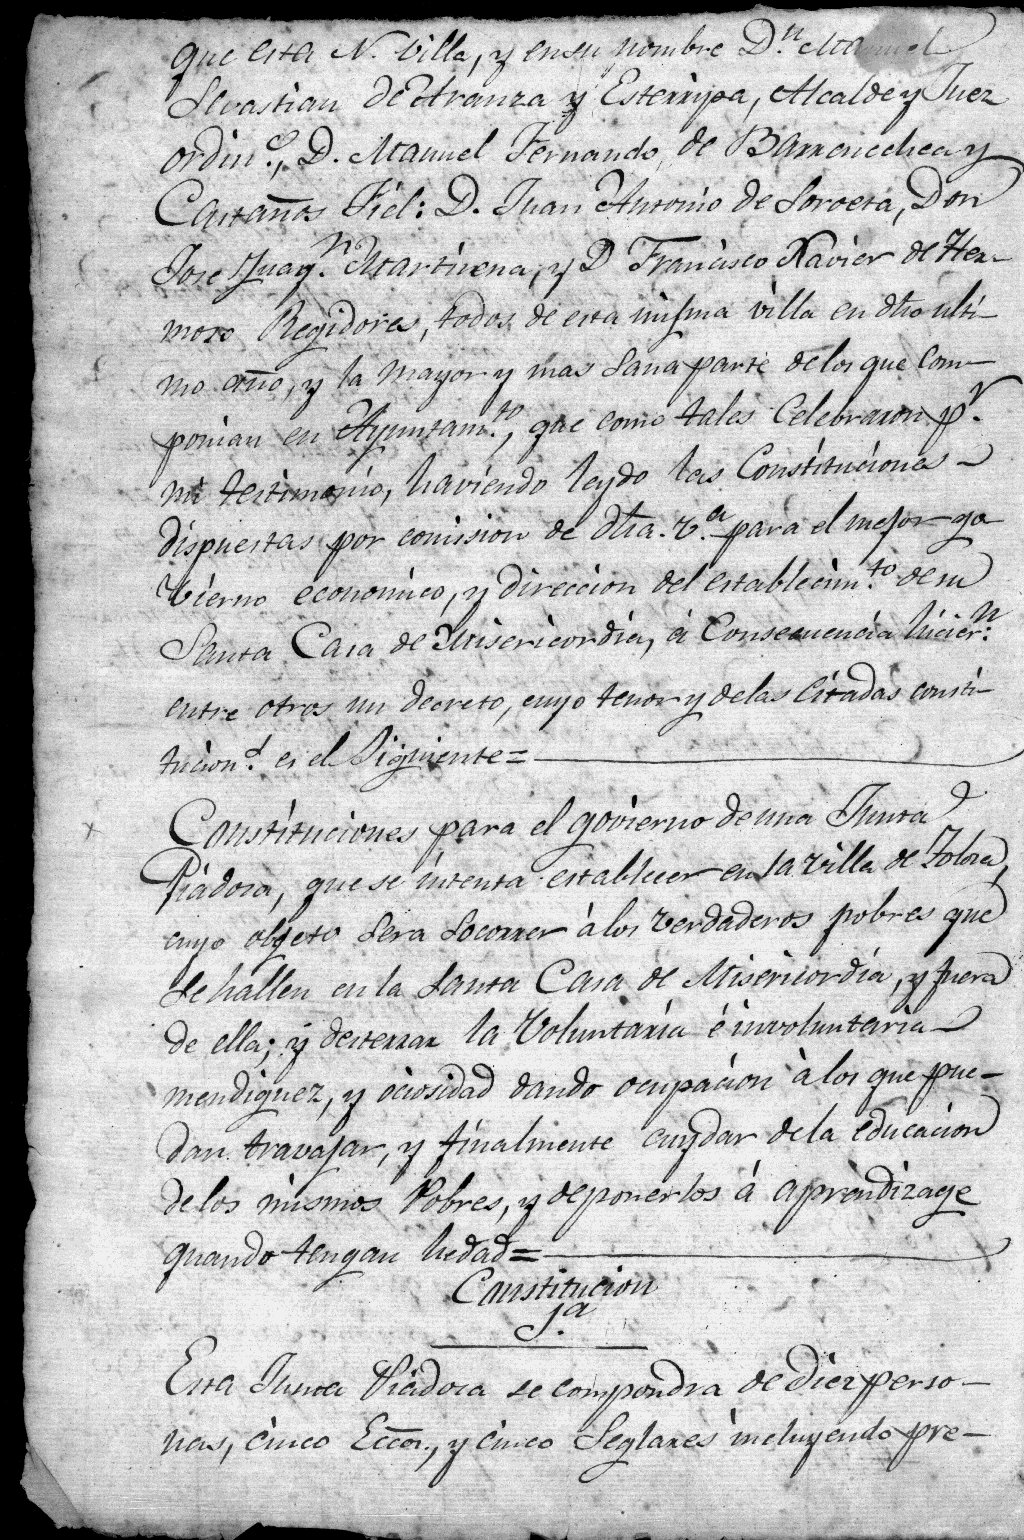 que esta N. villa, y en su nombre D.n Manuel
Sevastian de Aranza y Esterripa, Alcalde y Juez
ordin.o, D. Manuel Fernando de Barrenechea y
Castaños Fiel: D. Juan Antonio de Soroeta, Don
Jose Juaq.n Martirena, y D Francisco Xavier de Her-
moso Regidores, todos de esta misma villa en dho ulti-
mo año, y la mayor y mas sana parte de los que com-
ponian en Ayuntam.to, que como tales Celebraron p.r
mi testimonio, haviendo leydo las Constituciones
dispuestas por comision de dha. v.a para el mejor go
vierno economico, y direccion del establecim.to de su
Santa Casa de Misericordia, á Consecuencia hicier.n
entre otros un decreto, cuyo tenor y de las citadas consti-
tucion.s es el Siguiente=
Constituciones para el govierno de una Junta
Piadosa, que se intenta establecer en la villa de Tolosa,
cuyo objeto sera socorrer à los verdaderos pobres que
se hallen en la Santa Casa de Misericordia, y fuera
de ella; y desterrar la Voluntaria é involuntaria
mendiguez, y ociosidad dando ocupacion à los que pue-
dan travajar, y finalmente cuydar de la educacion
de los mismos Pobres, y de ponerlos á aprendizage
quando tengan hedad=
Constitucion
1.a
Esta Junta Piadosa se compondra de Diez perso-
nas, cinco Eccos., y cinco Seglares incluyendo pre-